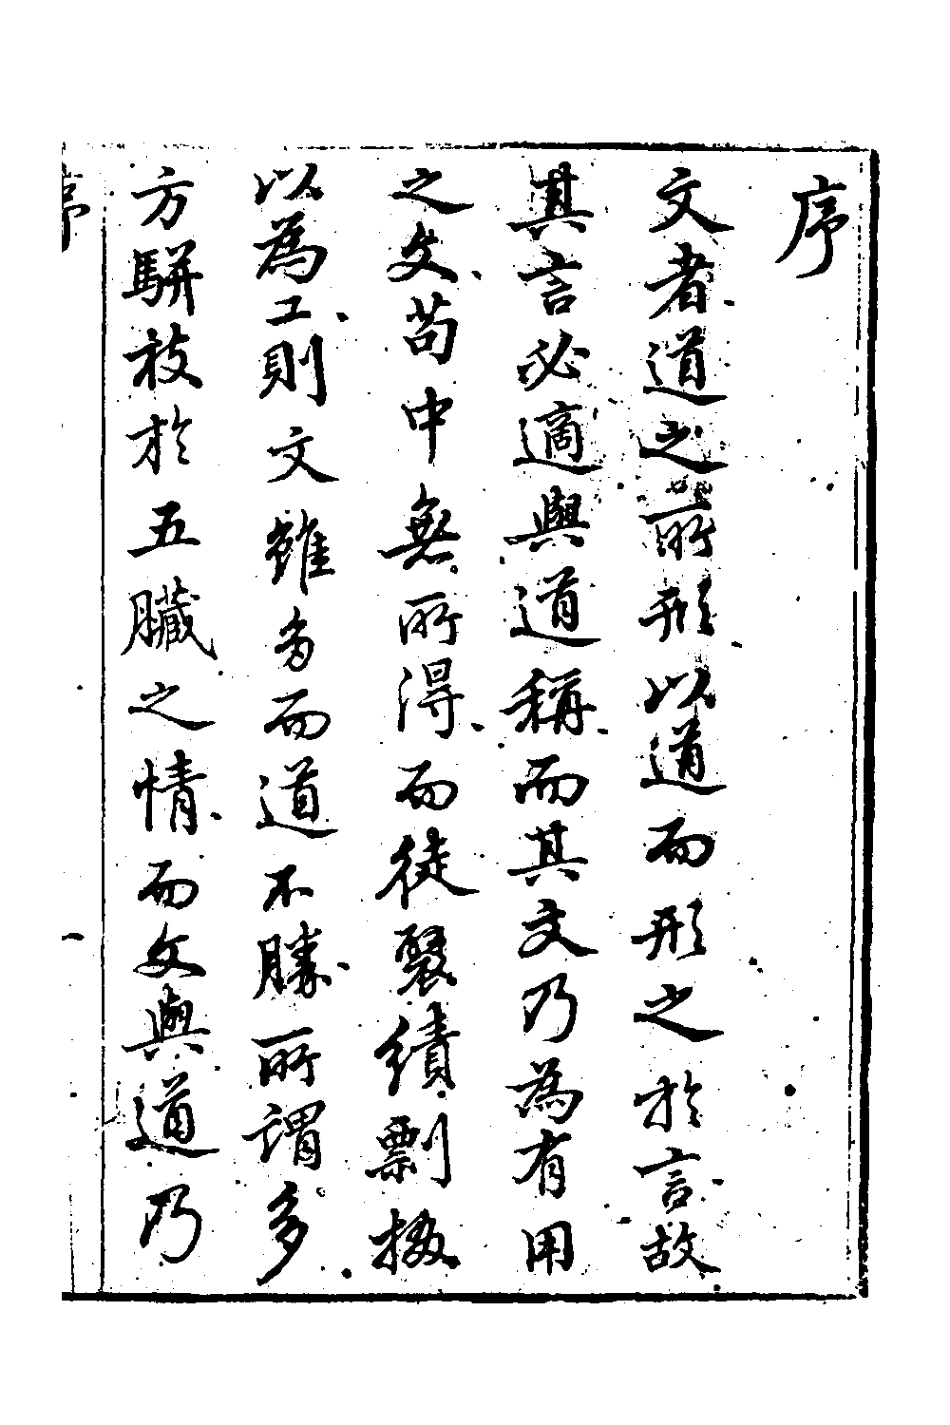 序
文者道之所形以道而形之於言故
其言必適與道稱而其文乃為有用
之文苟中無所得而徒襞績剽掇
以為工則文雖多而道不勝所謂多
方駢枝於五臟之情而文與道乃
序